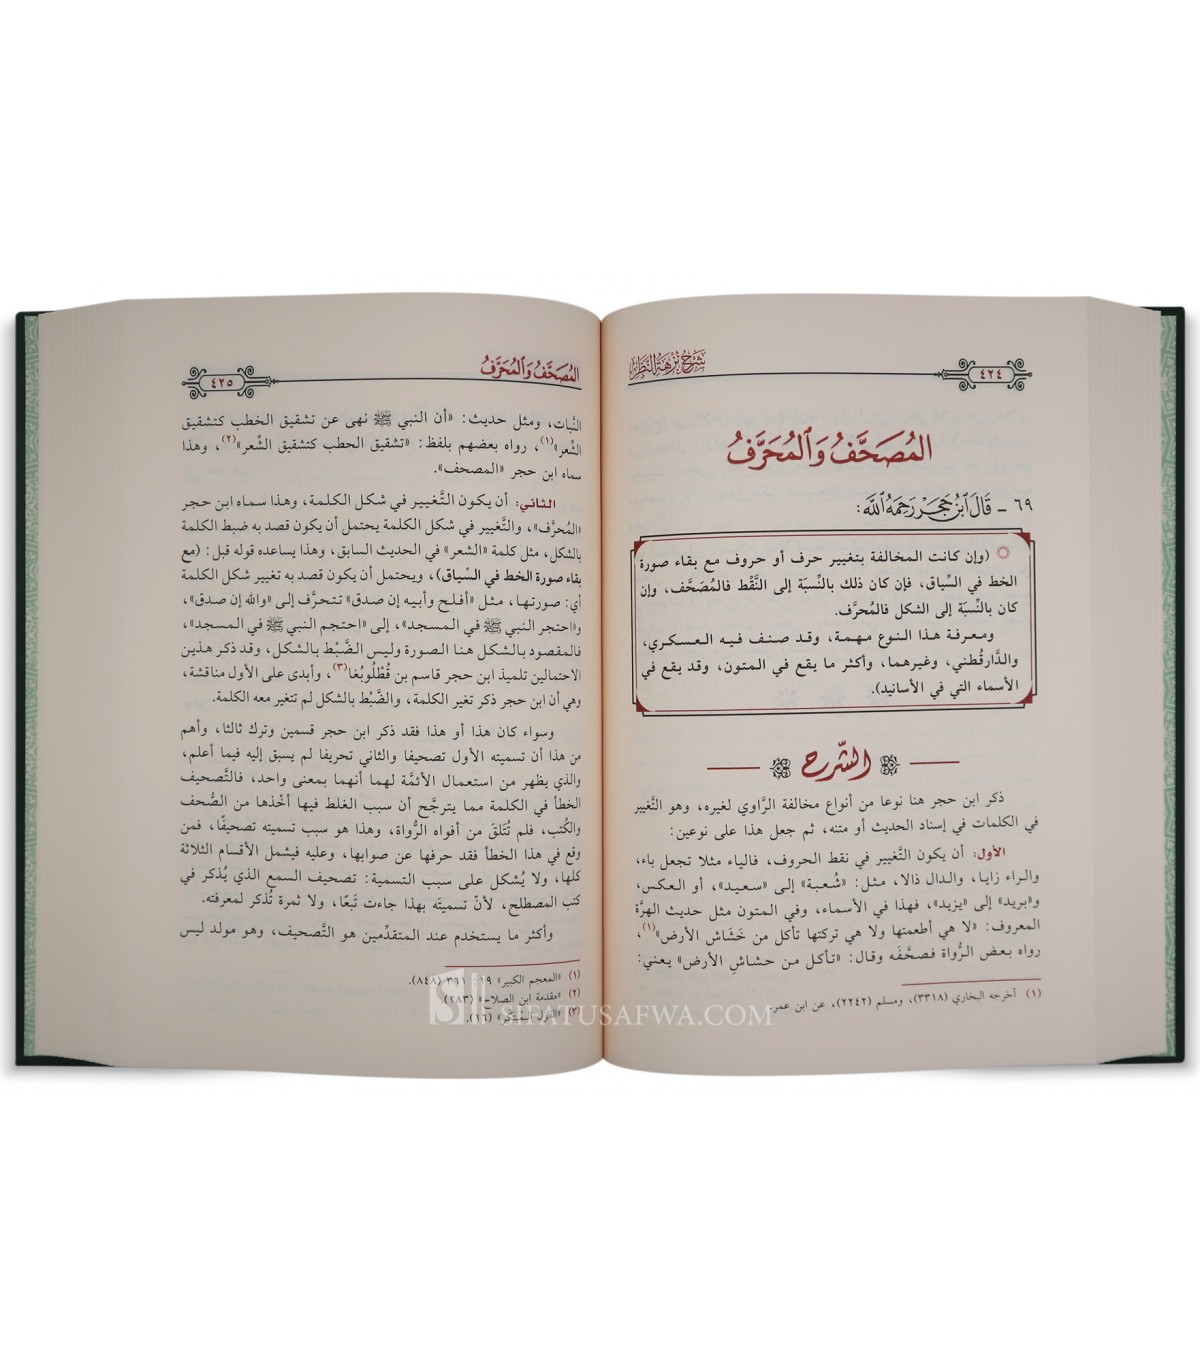 شرح نزهة النظر
٤٢٤
المُصَحَّفُ وَالمُحَرَّفُ
٦٩ - قَالَ ابْنُ حَجَرٍ رَحِمَهُ اللَّهُ:
(وإن كانت المخالفة بتغيير حرف أو حروف مع بقاء صورة
الخط في السِّياق، فإن كان ذلك بالنِّسبَة إلى النَّقْط فالمُصَحَّف، وإن
كان بالنِّسبَة إلى الشكل فالمُحرَّف.
ومعرفة هذا النوع مهمة، وقد صنف فيه العسكري،
والدَّارقُطني، وغيرهما، وأكثر ما يقع في المتون، وقد يقع في
الأسماء التي في الأسانيد).
الشّرح
ذكر ابن حجر هنا نوعا من أنواع مخالفة الرَّاوي لغيره، وهو التَّغيير
في الكلمات في إسناد الحديث أو متنه، ثم جعل هذا على نوعين:
الأول: أن يكون التَّغيير في نقط الحروف، فالياء مثلا تجعل باء،
والراء زايا، والدال ذالا، مثل: «شُعبة» إلى «سعيد»، أو العكس،
و«بريد» إلى «يزيد»، فهذا في الأسماء، وفي المتون مثل حديث الهرَّة
المعروف: «لا هي أطعمتها ولا هي تركتها تأكل من خَشَاش الأرض»(١)،
رواه بعض الرُّواة فصحَّفَه وقال: «تأكل من حشاشِ الأرض» يعني:
(١) أخرجه البخاري (٣٣١٨)، ومسلم (٢٢٤٢)، عن ابن عمر.
المُصَحَّفُ وَالمُحَرَّفُ
٤٢٥
النَّبات، ومثل حديث: «أن النبي ﷺ نهى عن تشقيق الخطب كتشقيق
الشِّعر»(١)، رواه بعضهم بلفظ: «تشقيق الحطب كتشقيق الشِّعر»(٢)، وهذا
سماه ابن حجر «المصحف».
الثاني: أن يكون التَّغيير في شكل الكلمة، وهذا سماه ابن حجر
«المُحرَّف»، والتَّغيير في شكل الكلمة يحتمل أن يكون قصد به ضبط الكلمة
بالشكل، مثل كلمة «الشعر» في الحديث السابق، وهذا يساعده قوله قبل: (مع
بقاء صورة الخط في السِّياق)، ويحتمل أن يكون قصد به تغيير شكل الكلمة
أي: صورتها، مثل «أفلح وأبيه إن صدق» تتحرَّف إلى «والله إن صدق»،
و«احتجر النبي ﷺ في المسجد»، إلى «احتجم النبي ﷺ في المسجد»،
فالمقصود بالشكل هنا الصورة وليس الضَّبْط بالشكل، وقد ذكر هذين
الاحتمالين تلميذ ابن حجر قاسم بن قُطْلُوبُغا(٣)، وأبدى على الأول مناقشة،
وهي أن ابن حجر ذكر تغير الكلمة، والضَّبْط بالشكل لم تتغير معه الكلمة.
وسواء كان هذا أو هذا فقد ذكر ابن حجر قسمين وترك ثالثا، وأهم
من هذا أن تسميته الأول تصحيفا والثاني تحريفا لم يسبق إليه فيما أعلم،
والذي يظهر من استعمال الأئمَّة لهما أنهما بمعنى واحد، فالتَّصحيف
الخطأ في الكلمة مما يترجَّح أن سبب الغلط فيها أخْذها من الصُّحف
والكُتب، فلم تُتَلقَ من أفواه الرُّواة، وهذا هو سبب تسميته تصحيفًا، فمن
وقع في هذا الخطأ فقد حرفها عن صوابها، وعليه فيشمل الأقسام الثلاثة
كلها، ولا يُشكل على سبب التسمية: تصحيف السمع الذي يُذكر في
كتب المصطلح، لأنّ تسميتَه بهذا جاءت تَبعًا، ولا ثمرة تُذكر لمعرفته.
وأكثر ما يستخدم عند المتقدِّمين هو التَّصحيف، وهو مولد ليس
(١) «المعجم الكبير» ١٩: (٨٤٨).
(٢) «مقدمة ابن الصلاح» (٢٨٣).
(٣) (١٦).
SIFATUSAFWA.COM